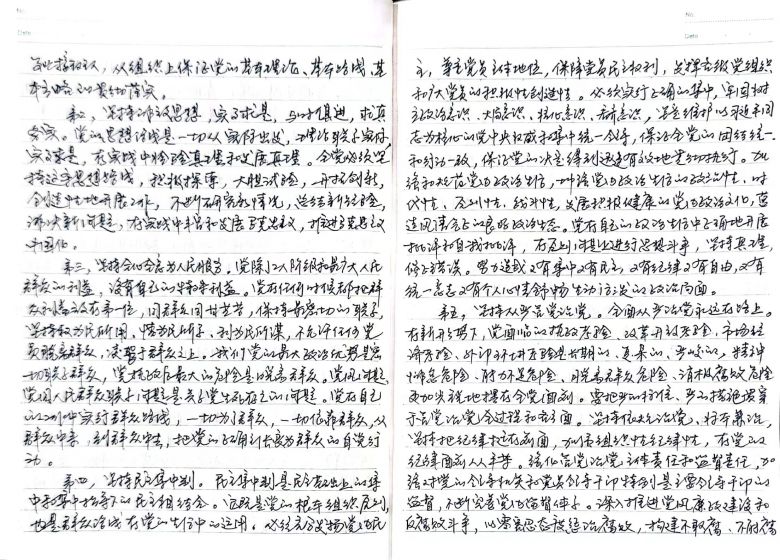 No.
Date
和接班人，从组织上保证党的基本理论、基本路线、基
本方略的贯彻落实。
第二，坚持解放思想，实事求是，与时俱进，求真
务实。党的思想路线是一切从实际出发，理论联系实际，
实事求是，在实践中检验真理和发展真理。全党必须坚
持这条思想路线，积极探索，大胆试验，开拓创新，
创造性地开展工作，不断研究新情况，总结新经验，
解决新问题，在实践中丰富和发展马克思主义，推进马克思主义
中国化。
第三，坚持全心全意为人民服务。党除了工人阶级和最广大人民
群众的利益，没有自己的特殊利益。党在任何时候都把群
众利益放在第一位，同群众同甘共苦，保持最密切的联系，
坚持权为民所用、情为民所系、利为民所谋，不允许任何党
员脱离群众，凌驾于群众之上。我们党的最大政治优势是密
切联系群众，党执政后最大的危险是脱离群众。党风问题、
党同人民群众联系问题是关系党生死存亡的问题。党在自己
的工作中实行群众路线，一切为了群众，一切依靠群众，从
群众中来，到群众中去，把党的正确主张变为群众的自觉行
动。
第四，坚持民主集中制。民主集中制是民主基础上的集
中和集中指导下的民主相结合。它既是党的根本组织原则，
也是群众路线在党的生活中的运用。必须充分发扬党内民
No.
Date
主，尊重党员主体地位，保障党员民主权利，发挥各级党组织
和广大党员的积极性创造性。必须实行正确的集中，牢固树
立政治意识、大局意识、核心意识、看齐意识，坚定维护以习近平同
志为核心的党中央权威和集中统一领导，保证全党的团结统一
和行动一致，保证党的决定得到迅速有效地贯彻执行。加
强和规范党内政治生活，增强党内政治生活的政治性、时
代性、原则性、战斗性，发展积极健康的党内政治文化，营
造风清气正的良好政治生态。党在自己的政治生活中正确地开展
批评和自我批评，在原则问题上进行思想斗争，坚持真理，
修正错误。努力造成又有集中又有民主，又有纪律又有自由，又有
统一意志又有个人心情舒畅生动活泼的政治局面。
第五，坚持从严管党治党。全面从严治党永远在路上。
在新形势下，党面临的执政考验、改革开放考验、市场经
济考验、外部环境考验是长期的、复杂的、严峻的，精神
懈怠危险、能力不足危险、脱离群众危险、消极腐败危险
更加尖锐地摆在全党面前。要把严的标准、严的措施贯穿
于管党治党全过程和各方面。坚持依规治党、标本兼治，
坚持把纪律挺在前面，加强组织性纪律性，在党的
纪律面前人人平等。强化管党治党主体责任和监督责任，加
强对党的领导机关和党员领导干部特别是主要领导干部的
监督，不断完善党内监督体系。深入推进党风廉政建设和
反腐败斗争，以零容忍态度惩治腐败，构建不敢腐、不能腐